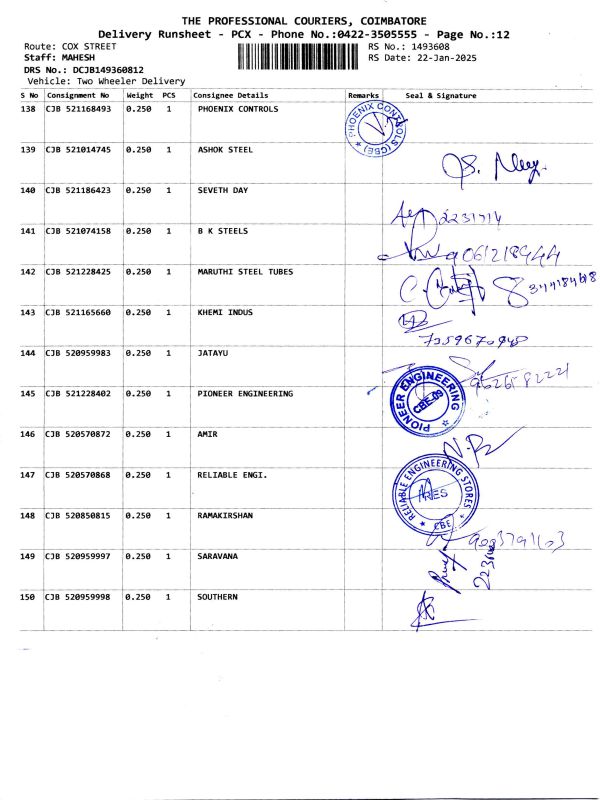 THE PROFESSIONAL COURIERS, COIMBATORE
Delivery Runsheet - PCX - Phone No.:0422-3505555 - Page No.:12
Route: COX STREET RS No.: 1493608
Staff: MAHESH RS Date: 22-Jan-2025
DRS No.: DCJB149360812
Vehicle: Two Wheeler Delivery
S No Consignment No Weight PCS Consignee Details Remarks Seal & Signature
138 CJB 521168493 0.250 1 PHOENIX CONTROLS
PHOENIX CONTROLS (CBE)
139 CJB 521014745 0.250 1 ASHOK STEEL
140 CJB 521186423 0.250 1 SEVETH DAY
2231714
141 CJB 521074158 0.250 1 B K STEELS
9061218944
142 CJB 521228425 0.250 1 MARUTHI STEEL TUBES
143 CJB 521165660 0.250 1 KHEMI INDUS
144 CJB 520959983 0.250 1 JATAYU
145 CJB 521228402 0.250 1 PIONEER ENGINEERING
PIONEER ENGINEERING
CBE-09
146 CJB 520570872 0.250 1 AMIR
147 CJB 520570868 0.250 1 RELIABLE ENGI.
RELIABLE ENGINEERING STORES
ARES
CBE
148 CJB 520850815 0.250 1 RAMAKIRSHAN
149 CJB 520959997 0.250 1 SARAVANA
150 CJB 520959998 0.250 1 SOUTHERN